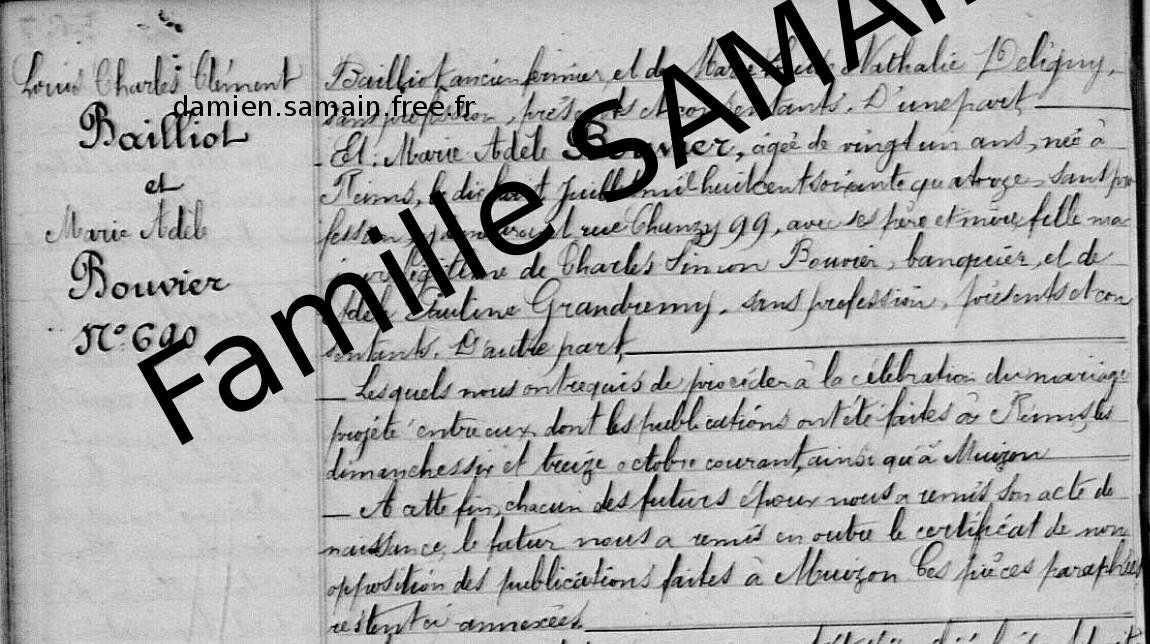 Louis Charles Clément
Bailliot
et
Marie Adèle
Bouvier
N° 690
damien.samain.free.fr
Famille SAMAIN
Bailliot ancien fermier, et de Marie Nathalie Deligny,
sans profession, présents et consentants. D'une part
Et: Marie Adèle Bouvier, âgée de vingt un ans, née à
Reims, le dix huit Juillet mil huit cent soixante quatorze, sans pro
fession, demeurant rue Chanzy 99, avec ses père et mère, fille ma
jeure légitime de Charles Simon Bouvier, banquier, et de
Adèle Pauline Grandremy, sans profession, présents et con
sentants. D'autre part,
Lesquels nous ont requis de procéder à la célébration du mariage
projeté entre eux, dont les publications ont été faites à Reims, les
dimanches six et treize octobre courant, ainsi qu'à Muizon
A cette fin, chacun des futurs époux nous a remis son acte de
naissance, le futur nous a remis en outre le certificat de non
opposition des publications faites à Muizon Ces pièces paraphées
restent ci annexées